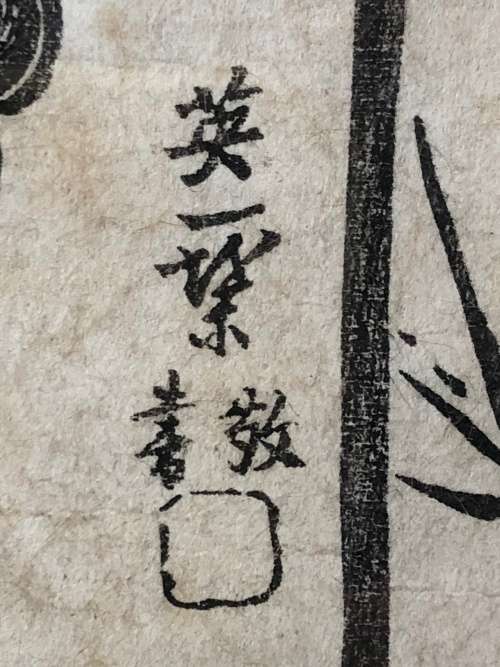 英一
敬書